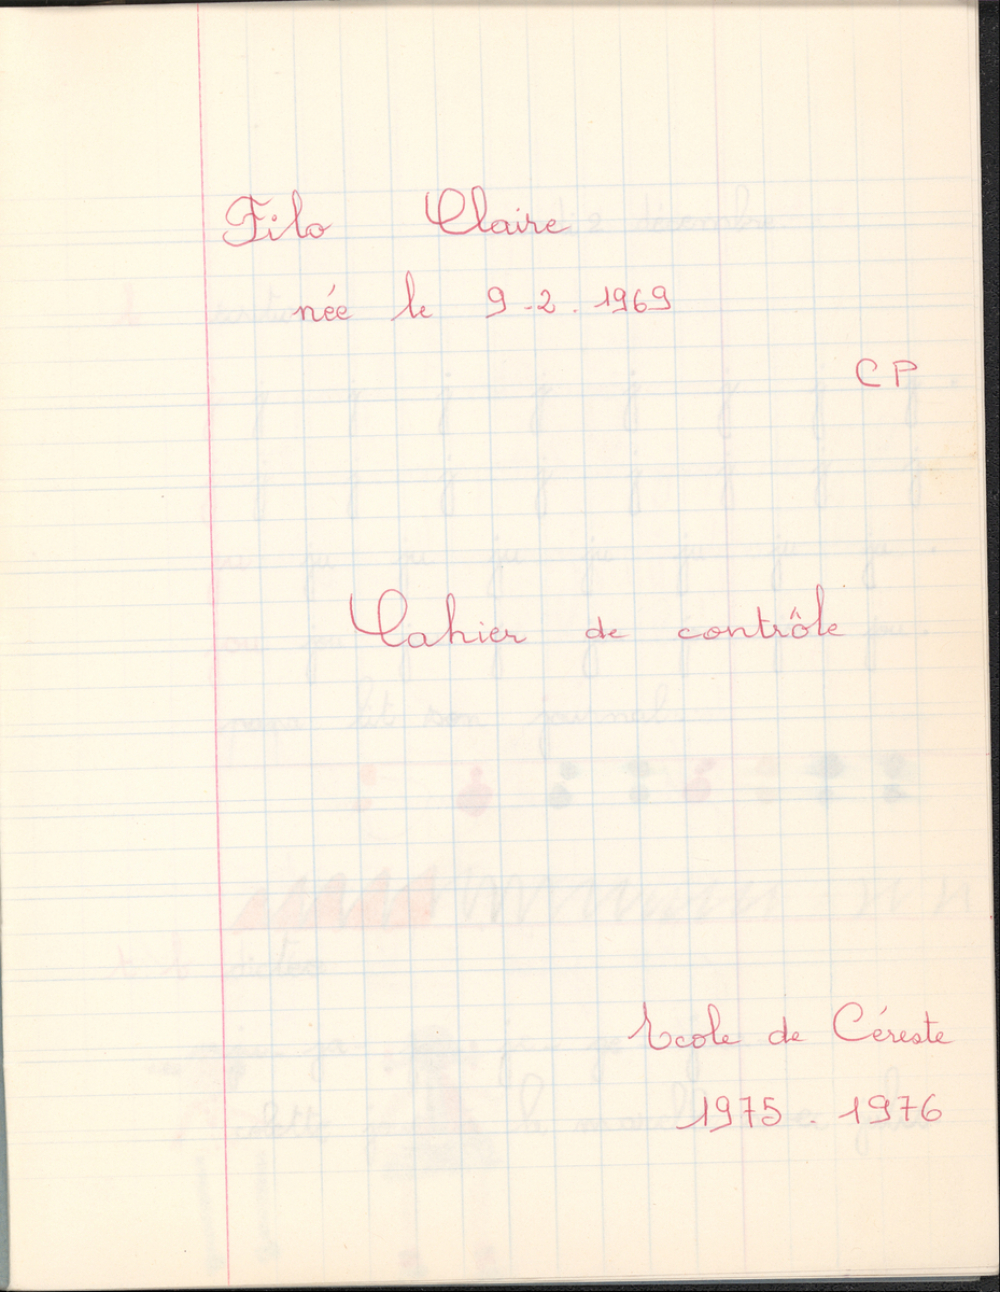 Filo Claire
née le 9.2.1969
CP
Cahier de contrôle
Ecole de Céreste
1975.1976